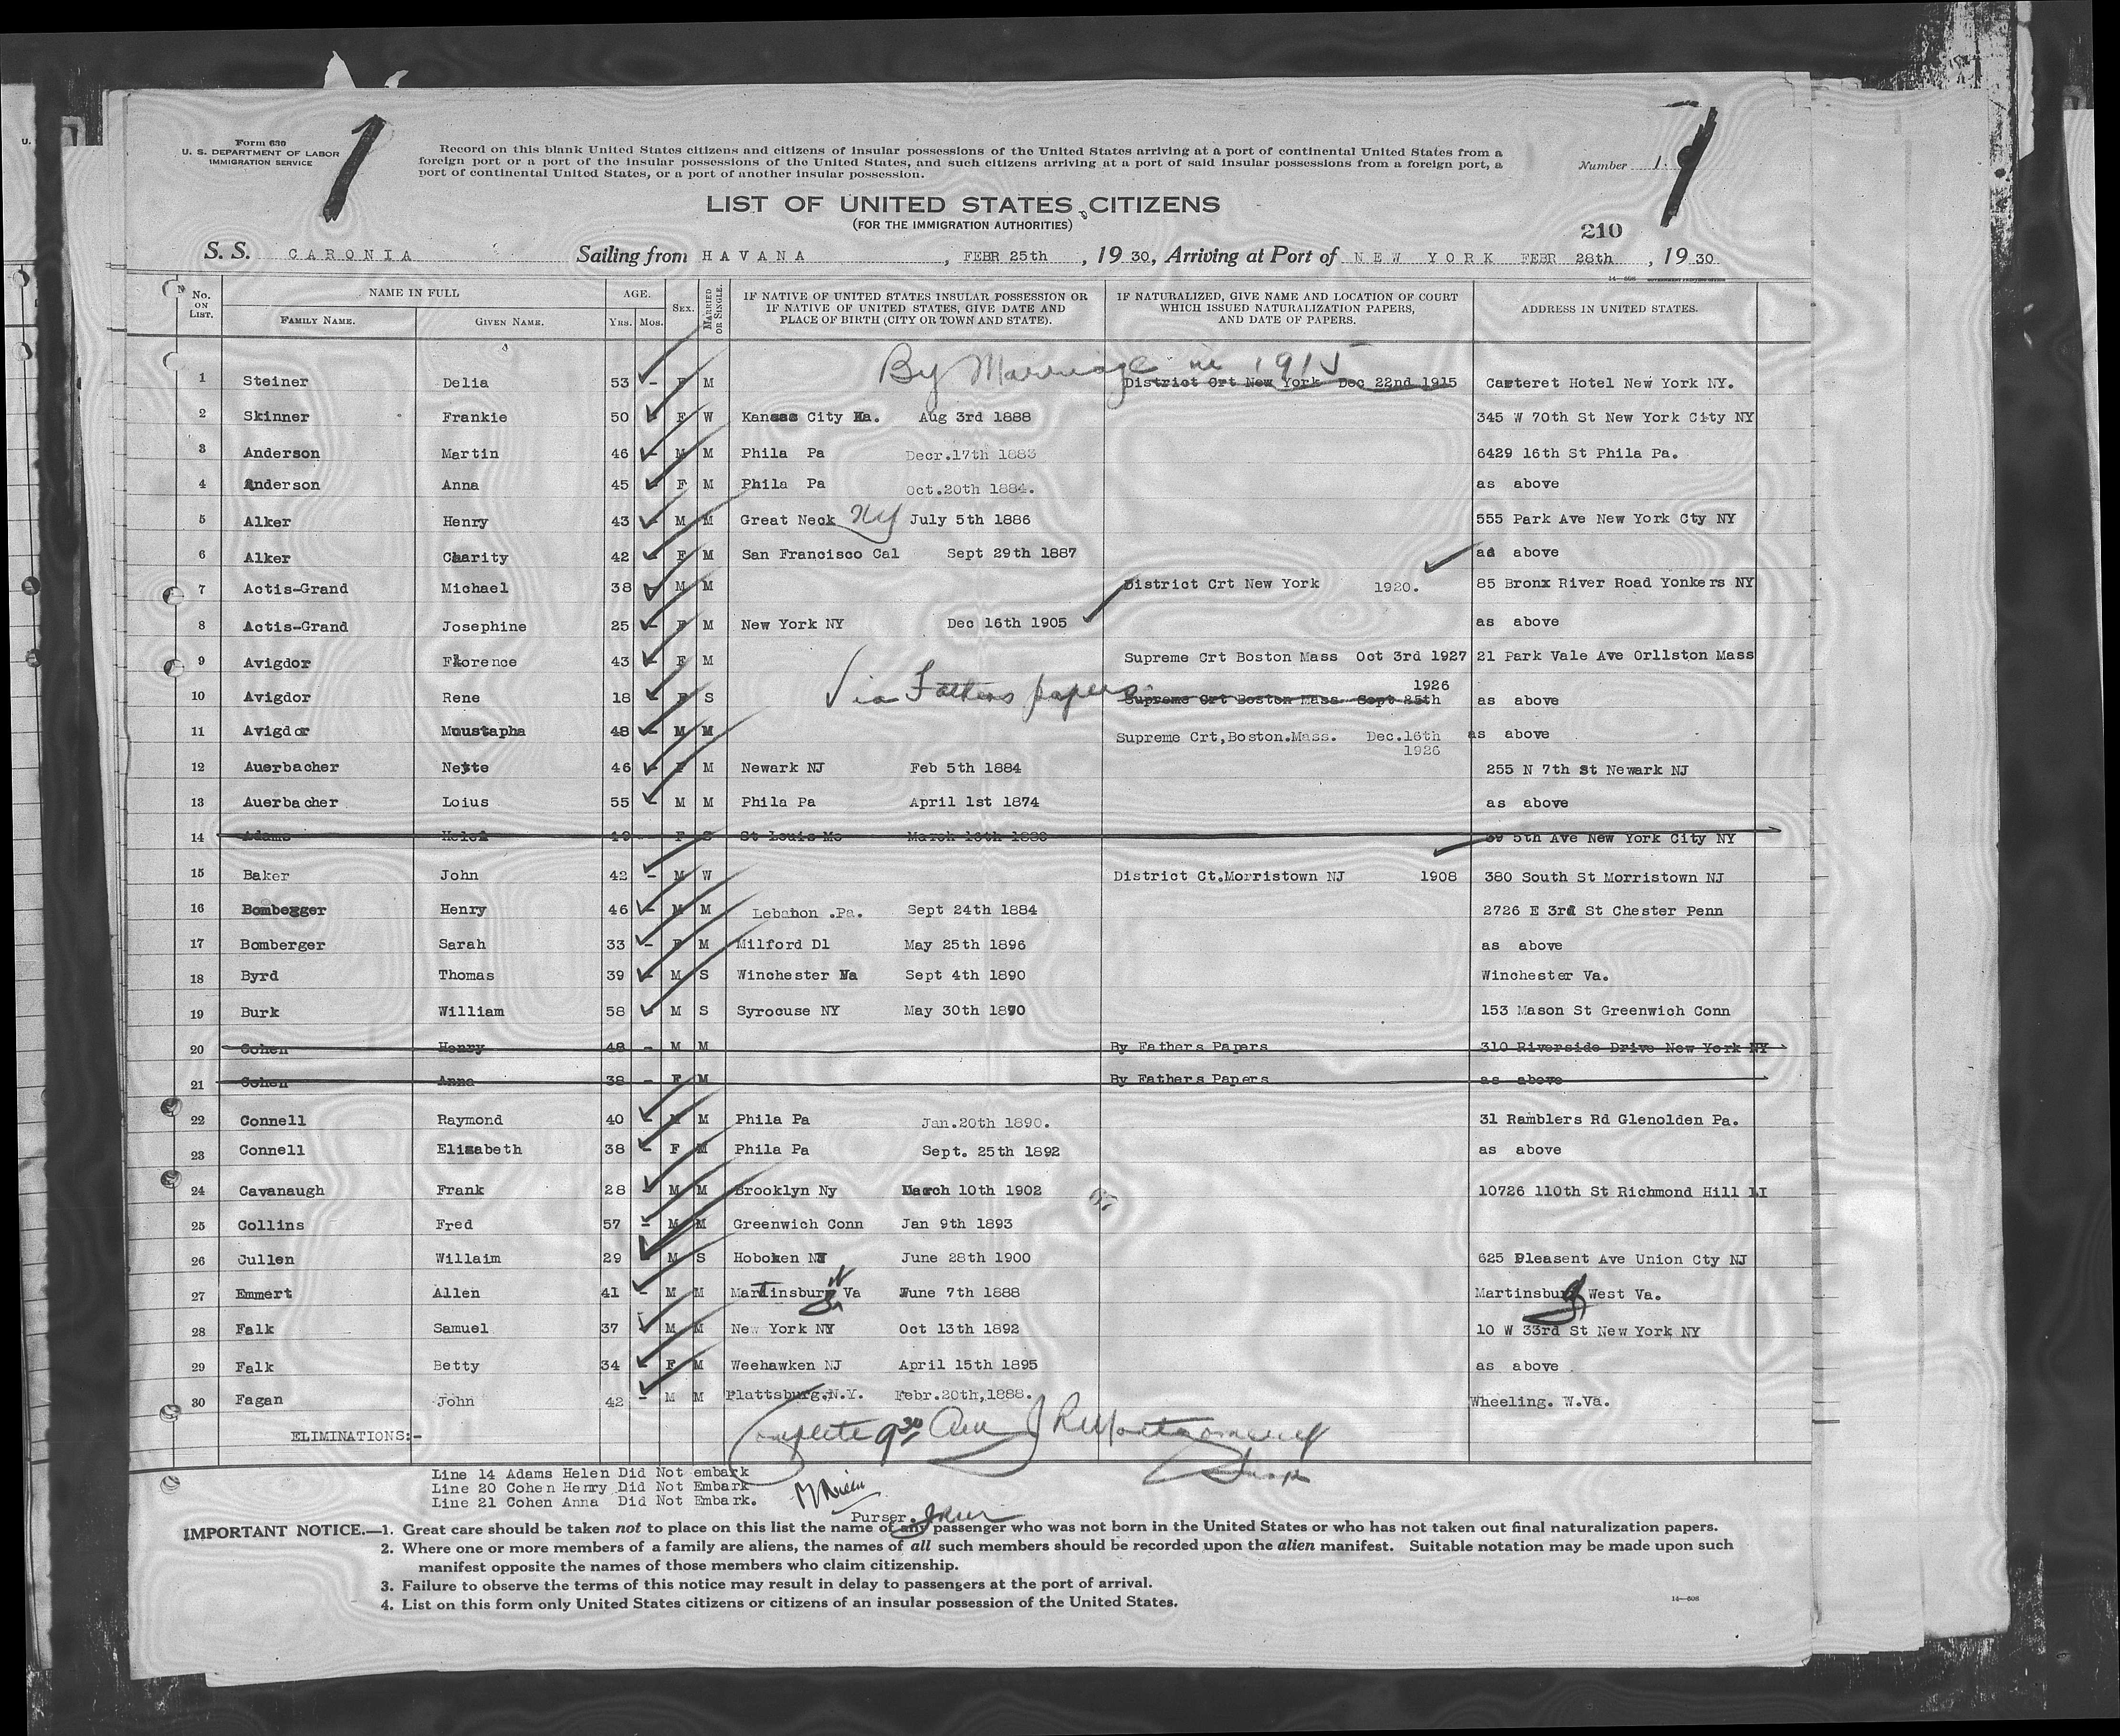 Form 630
U. S. DEPARTMENT OF LABOR
IMMIGRATION SERVICE
1
Record on this blank United States citizens and citizens of insular possessions of the United States arriving at a port of continental United States from a
foreign port or a port of the insular possessions of the United States, and such citizens arriving at a port of said insular possessions from a foreign port, a
port of continental United States, or a port of another insular possession.
Number 1.
LIST OF UNITED STATES CITIZENS
(FOR THE IMMIGRATION AUTHORITIES)
210
S. S. CARONIA Sailing from HAVANA, FEBR 25th, 19 30, Arriving at Port of NEW YORK FEBR 28th, 19 30
No. ON LIST. NAME IN FULL FAMILY NAME. GIVEN NAME. AGE. YRS. MOS. SEX. MARRIED OR SINGLE. IF NATIVE OF UNITED STATES INSULAR POSSESSION OR IF NATIVE OF UNITED STATES, GIVE DATE AND PLACE OF BIRTH (CITY OR TOWN AND STATE). IF NATURALIZED, GIVE NAME AND LOCATION OF COURT WHICH ISSUED NATURALIZATION PAPERS, AND DATE OF PAPERS. ADDRESS IN UNITED STATES.
By Marriage in 1915
1 Steiner Delia 53 - F M District Crt New York Dec 22nd 1915 Carteret Hotel New York NY.
2 Skinner Frankie 50 - F W Kansas City Ka. Aug 3rd 1888 345 W 70th St New York City NY
3 Anderson Martin 46 - M M Phila Pa Decr.17th 1883 6429 16th St Phila Pa.
4 Anderson Anna 45 - F M Phila Pa Oct.20th 1884. as above
5 Alker Henry 43 - M M Great Neck NY July 5th 1886 555 Park Ave New York Cty NY
6 Alker Charity 42 - F M San Francisco Cal Sept 29th 1887 as above
7 Actis-Grand Michael 38 - M M District Crt New York 1920. 85 Bronx River Road Yonkers NY
8 Actis-Grand Josephine 25 - F M New York NY Dec 16th 1905 as above
9 Avigdor Florence 43 - F M Supreme Crt Boston Mass Oct 3rd 1927 21 Park Vale Ave Orllston Mass
10 Avigdor Rene 18 - F S Via Fathers papers Supreme Crt Boston Mass Sept 25th 1926 as above
11 Avigdor Moustapha 48 - M M Supreme Crt,Boston.Mass. Dec.16th 1926 as above
12 Auerbacher Nette 46 - F M Newark NJ Feb 5th 1884 255 N 7th St Newark NJ
13 Auerbacher Loius 55 - M M Phila Pa April 1st 1874 as above
14 Adams Helen 49 - F S St Louis Mo March 16th 1880 39 5th Ave New York City NY
15 Baker John 42 - M W District Ct.Morristown NJ 1908 380 South St Morristown NJ
16 Bombegger Henry 46 - M M Lebanon .Pa. Sept 24th 1884 2726 E 3rd St Chester Penn
17 Bomberger Sarah 33 - F M Milford Dl May 25th 1896 as above
18 Byrd Thomas 39 - M S Winchester Va Sept 4th 1890 Winchester Va.
19 Burk William 58 - M S Syrocuse NY May 30th 1870 153 Mason St Greenwich Conn
20 Cohen Henry 48 - M M By Fathers Papers 310 Riverside Drive New York NY
21 Cohen Anna 38 - F M By Fathers Papers as above
22 Connell Raymond 40 - M M Phila Pa Jan.20th 1890. 31 Ramblers Rd Glenolden Pa.
23 Connell Elizabeth 38 - F M Phila Pa Sept. 25th 1892 as above
24 Cavanaugh Frank 28 - M M Brooklyn Ny March 10th 1902 10726 110th St Richmond Hill LI
25 Collins Fred 57 - M M Greenwich Conn Jan 9th 1893
26 Cullen Willaim 29 - M S Hoboken NJ June 28th 1900 625 Pleasent Ave Union Cty NJ
27 Emmert Allen 41 - M M Martinsburg W Va June 7th 1888 Martinsburg West Va.
28 Falk Samuel 37 - M M New York NY Oct 13th 1892 10 W 33rd St New York NY
29 Falk Betty 34 - F M Weehawken NJ April 15th 1895 as above
30 Fagan John 42 - M M Plattsburg.N.Y. Febr.20th,1888. Wheeling. W.Va.
Complete 9 30 Am J R Montgomery
Insp
ELIMINATIONS:-
Line 14 Adams Helen Did Not embark
Line 20 Cohen Henry Did Not Embark
Line 21 Cohen Anna Did Not Embark.
Purser.
IMPORTANT NOTICE.—1. Great care should be taken not to place on this list the name of any passenger who was not born in the United States or who has not taken out final naturalization papers.
2. Where one or more members of a family are aliens, the names of all such members should be recorded upon the alien manifest. Suitable notation may be made upon such
manifest opposite the names of those members who claim citizenship.
3. Failure to observe the terms of this notice may result in delay to passengers at the port of arrival.
4. List on this form only United States citizens or citizens of an insular possession of the United States.
14—606